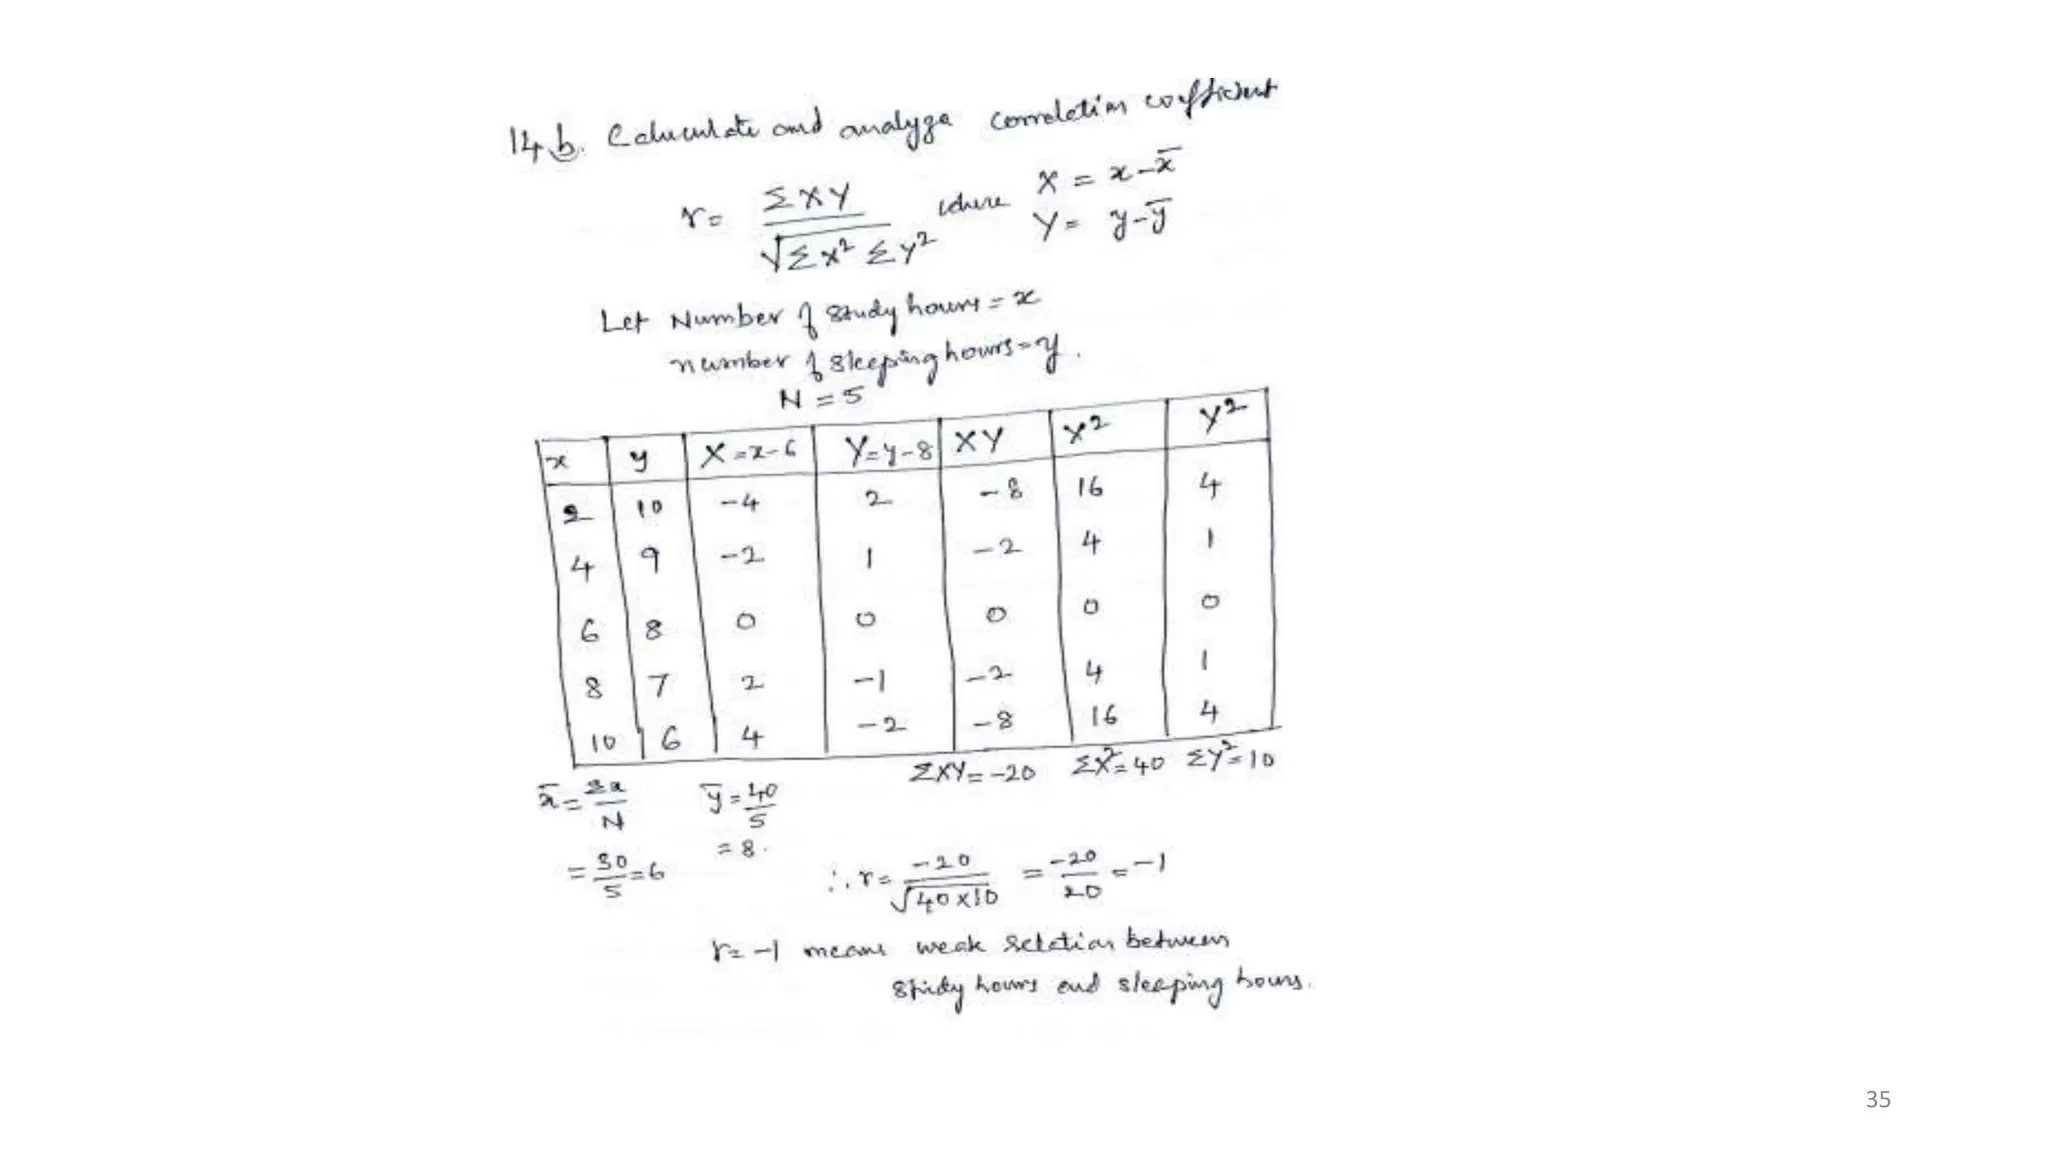 14 b. Calculate and analyze correlation coefficient
r = ΣXY / √ΣX² ΣY² where X = x - x̄
Y = y - ȳ
Let Number of study hours = x
number of sleeping hours = y.
N = 5
x y X = x-6 Y = y-8 XY X² Y²
2 10 -4 2 -8 16 4
4 9 -2 1 -2 4 1
6 8 0 0 0 0 0
8 7 2 -1 -2 4 1
10 6 4 -2 -8 16 4
ΣXY = -20 ΣX² = 40 ΣY² = 10
x̄ = Σx / N ȳ = 40 / 5
= 30 / 5 = 6 = 8.
∴ r = -20 / √40 × 10 = -20 / 20 = -1
r = -1 means weak relation between
study hours and sleeping hours.
35